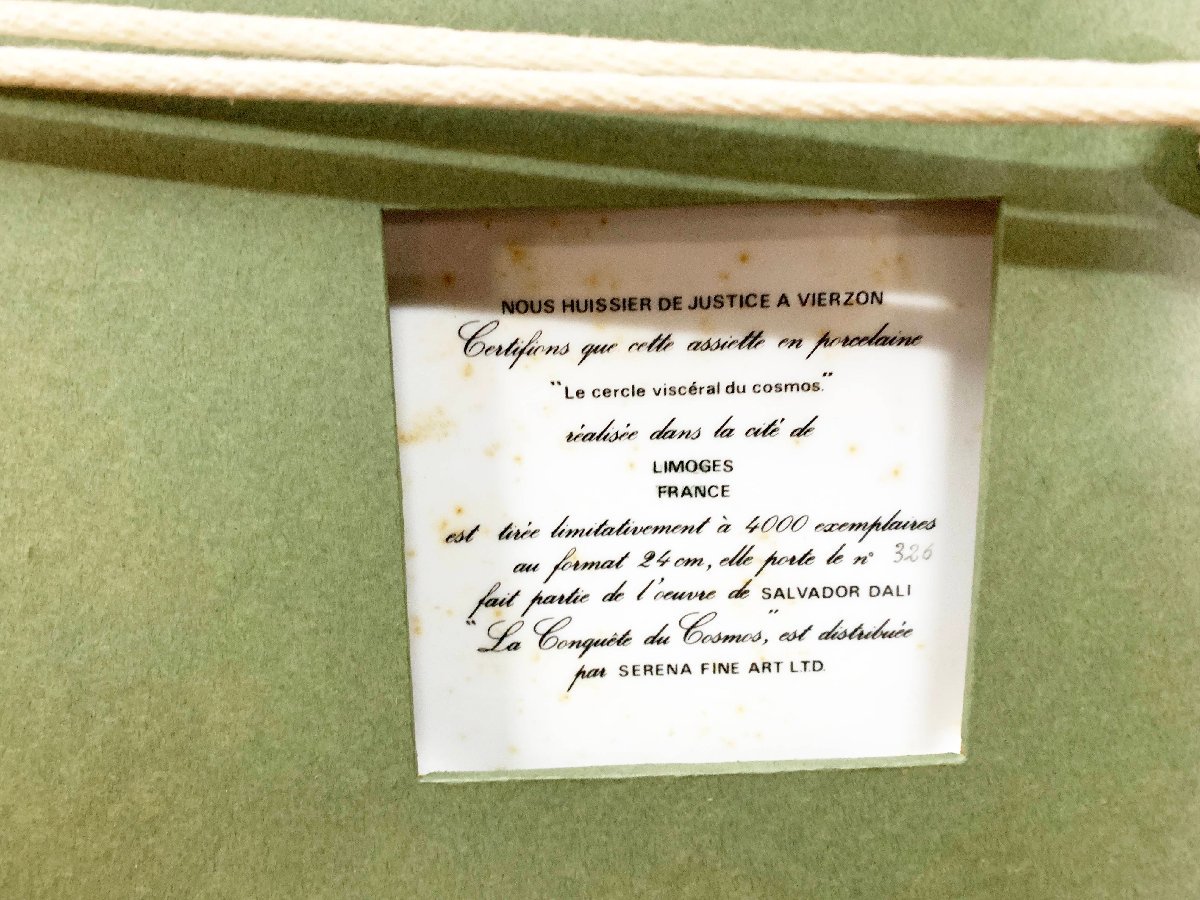 NOUS HUISSIER DE JUSTICE A VIERZON
Certifions que cette assiette en porcelaine
"Le cercle viscéral du cosmos."
réalisée dans la cité de
LIMOGES
FRANCE
est tirée limitativement à 4000 exemplaires
au format 24 cm, elle porte le n° 326
fait partie de l'oeuvre de SALVADOR DALI
"La Conquête du Cosmos", est distribuée
par SERENA FINE ART LTD.